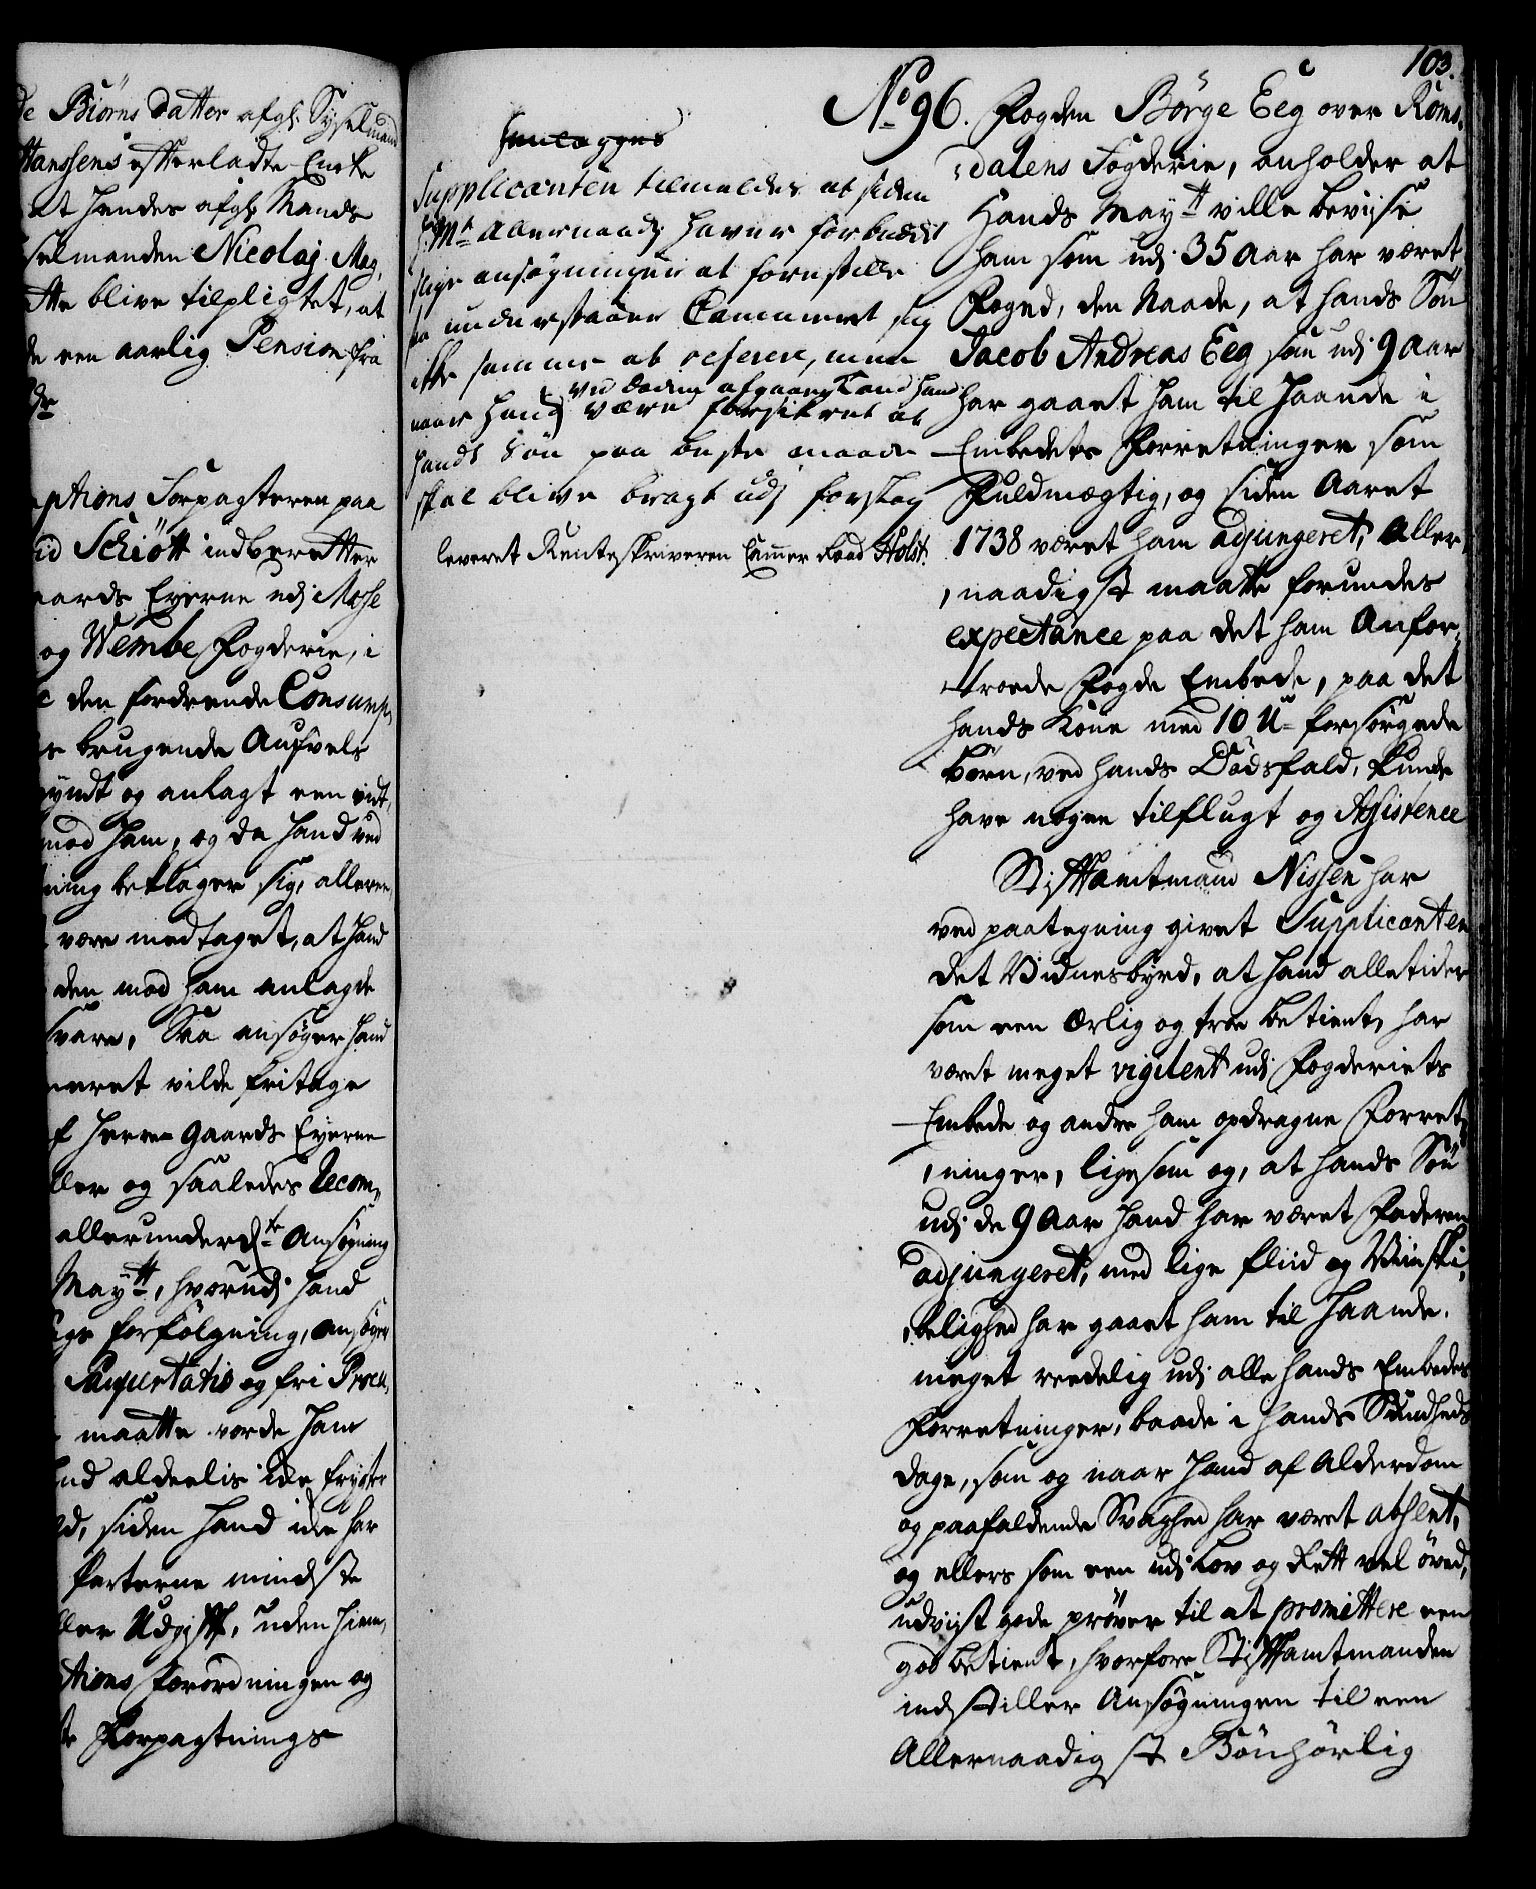 de Biörns datter afg: Sysselmand
Hanssens efterladte Encke
at hendes afg: Mands
selmanden Nicolaj Mag,
tte blive tilpligtet, at
de een aarlig Pension fra
de
ptions Forpagteren paa
id Schiött indberetter
aards Eyerne udj Mosse
og Wembe Fogderie, i
den fordrende Consump,
brugende Aufvels
yndt og anlagt een vidt,
mod ham, og da hand ved
ning beklager sig, alleree,
være medtaget, at hand
den mod ham anlagde
svare, Saa ansøger hand
meret vilde fritage
f Herre Gaards Eyerne
ller og saaledes Recom,,
allerunderd:te Ansøgning
Mayt:, hvorudj hand
forfølgning, ansøger
Paupertatis og fri Procu,
maatte vorde ham
nd aldeelis icke frygter
d, siden hand icke har
Parterne mindste
ller Udgift, uden hiem,
tions Forordningen og
te Forpagtnings
103.
Henlægges
Supplicanten tilmeldes at siden
H: Mt: Allernaad: haver forbudet
slige ansøgninger at forestille
saa understaaer Cammeret sig
icke samme at referere, men
ved Dødens afgaang kand hand
naar hand være forsikret at
hands Søn paa beste maade
skal blive bragt udj forslag
leveret Renteskriveren Camer Raad Holst.
No 96. Fogden Börge Eeg over Roms,
,dalens Fogderie, anholder at
Hands Mayt: ville bevjse
ham som udj 35 Aar har været
Foged, den Naade, at hands Søn
Jacob Andreas Eeg som udj 9 Aar
har gaaet ham til Haande i
Embedets Forretninger som
Fuldmægtig, og siden Aaret
1738 været ham adjungeret, Aller
,naadigst maatte forundes
expectance paa det ham Anfor,
,troede Fogde Embede, paa det
hands Kone med 10 U-forsørgede
Børn, ved hands Dødsfald, kunde
have nogen tilflugt og Assistence
Stiftamtmand Nissen har
ved paategning givet Supplicanten
det Vidnesbyrd, at hand alletider
som een Ærlig og troe betient, har
været meget vigilent udj Fogderiets
Embede og andre ham opdragne Forret,
,ninger, ligesom og, at hands Søn
udj de 9 Aar hand har været Faderen
adjungeret, med lige fliid og Viinski,
,belighed har gaaet ham til Haande.
meget reedelig udj alle hands Embedes
Forretninger, baade i hands Sundheds
dage, som og naar hand af Alderdom
og paafaldende Svaghed har været absent,
og ellers som een udj Lov og Rett vel øved,
udvjist gode prøver til at promittere een
god betient, hvorfore Stiftamtmanden
indstiller Ansøgningen til een
Allernaadigst Bönhørlig